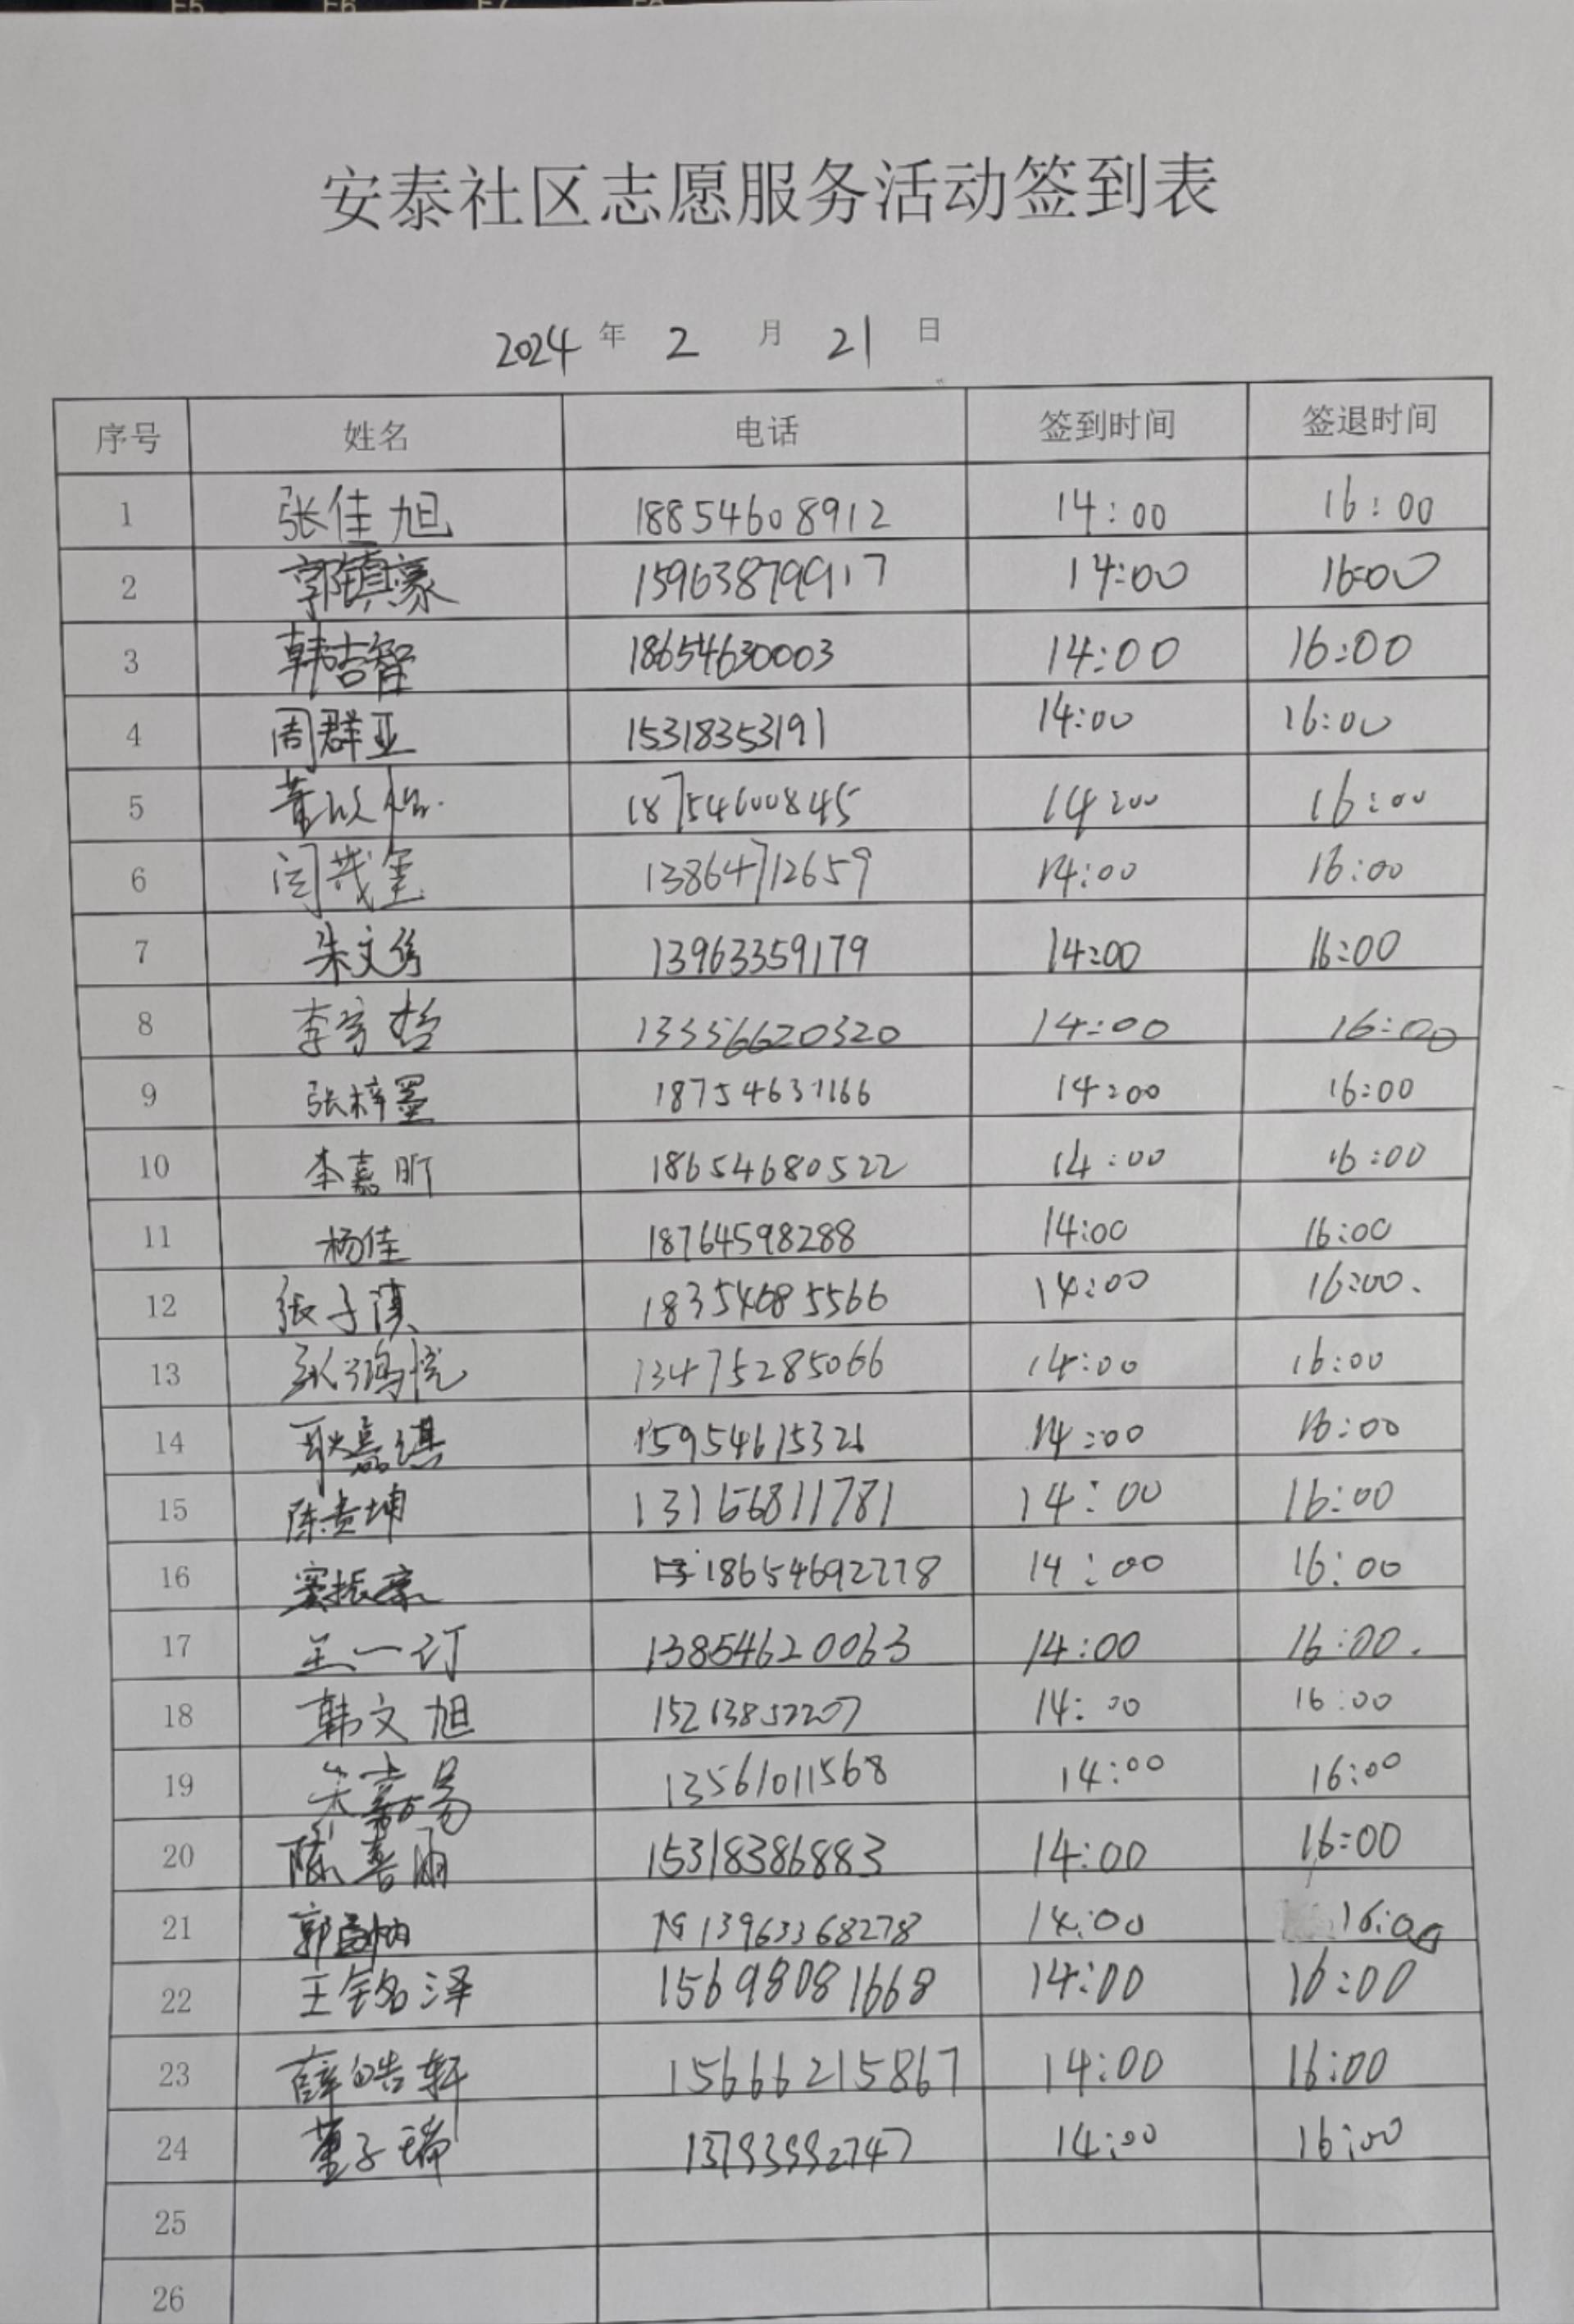 F5 F6 F7
安泰社区志愿服务活动签到表
2024 年 2 月 21 日
序号 姓名 电话 签到时间 签退时间
1 张佳旭 18854608912 14:00 16:00
2 郭镇豪 15963879917 14:00 16:00
3 韩吉智 18654630003 14:00 16:00
4 周群亚 15318353191 14:00 16:00
5 董以怡 18754600845 14:00 16:00
6 闫哉玺 13864712659 14:00 16:00
7 朱文秀 13963359179 14:00 16:00
8 李彦哲 13356620320 14:00 16:00
9 张梓墨 18754631166 14:00 16:00
10 李嘉昕 18654680522 14:00 16:00
11 杨佳 18764598288 14:00 16:00
12 张子淇 18354685566 14:00 16:00.
13 13475285066 14:00 16:00
14 耿嘉琪 15954615326 14:00 16:00
15 陈贵坤 13156811781 14:00 16:00
16 窦振豪 18654692278 14:00 16:00
17 王一订 13854620063 14:00 16:00.
18 韩文旭 15213852207 14:00 16:00
19 朱嘉易 13561011568 14:00 16:00
20 陈善涵 15318386883 14:00 16:00
21 郭 13963368278 14:00 16:00
22 王铭泽 15698081668 14:00 16:00
23 薛皓轩 15666215867 14:00 16:00
24 董子瑞 13793992747 14:00 16:00
25
26